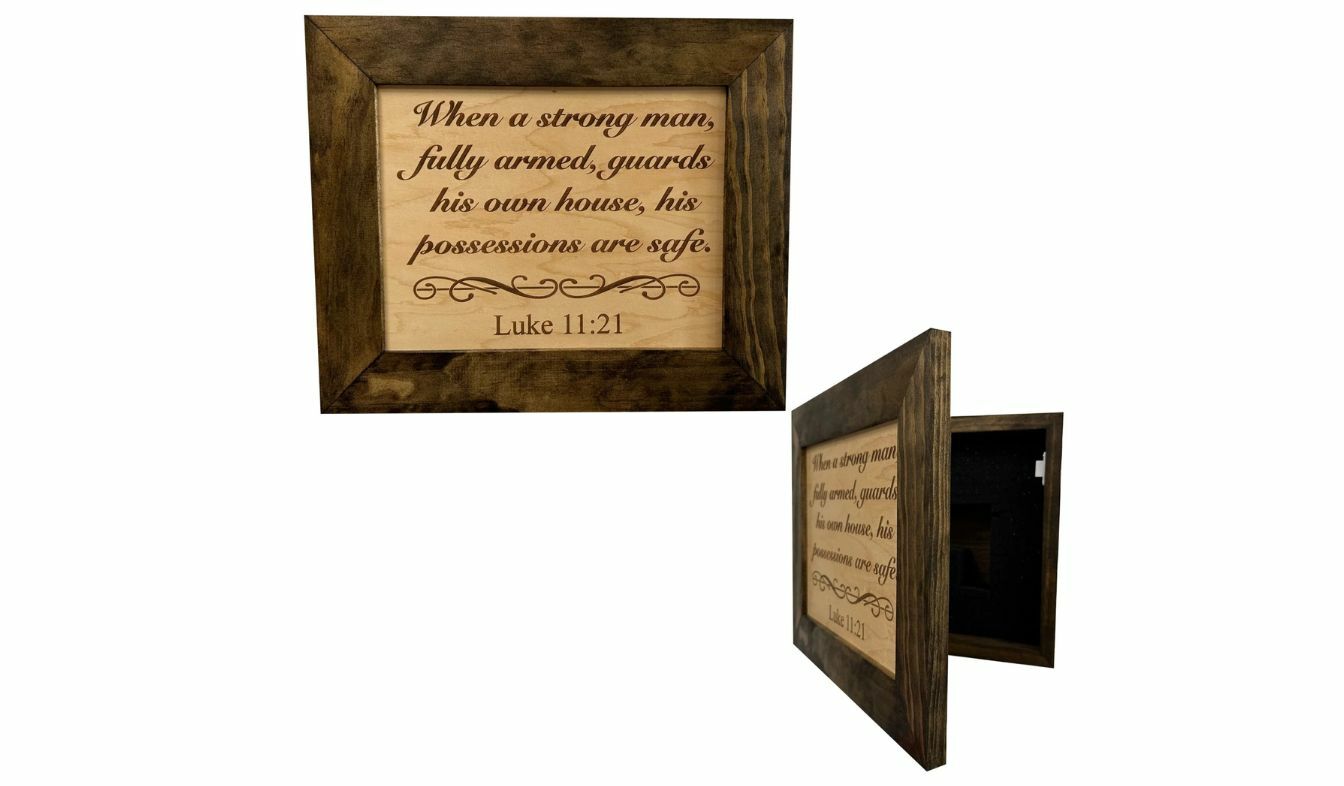 When a strong man,
fully armed, guards
his own house, his
possessions are safe.
Luke 11:21
When a strong man
fully armed, guards
his own house, his
possessions are safe.
Luke 11:21